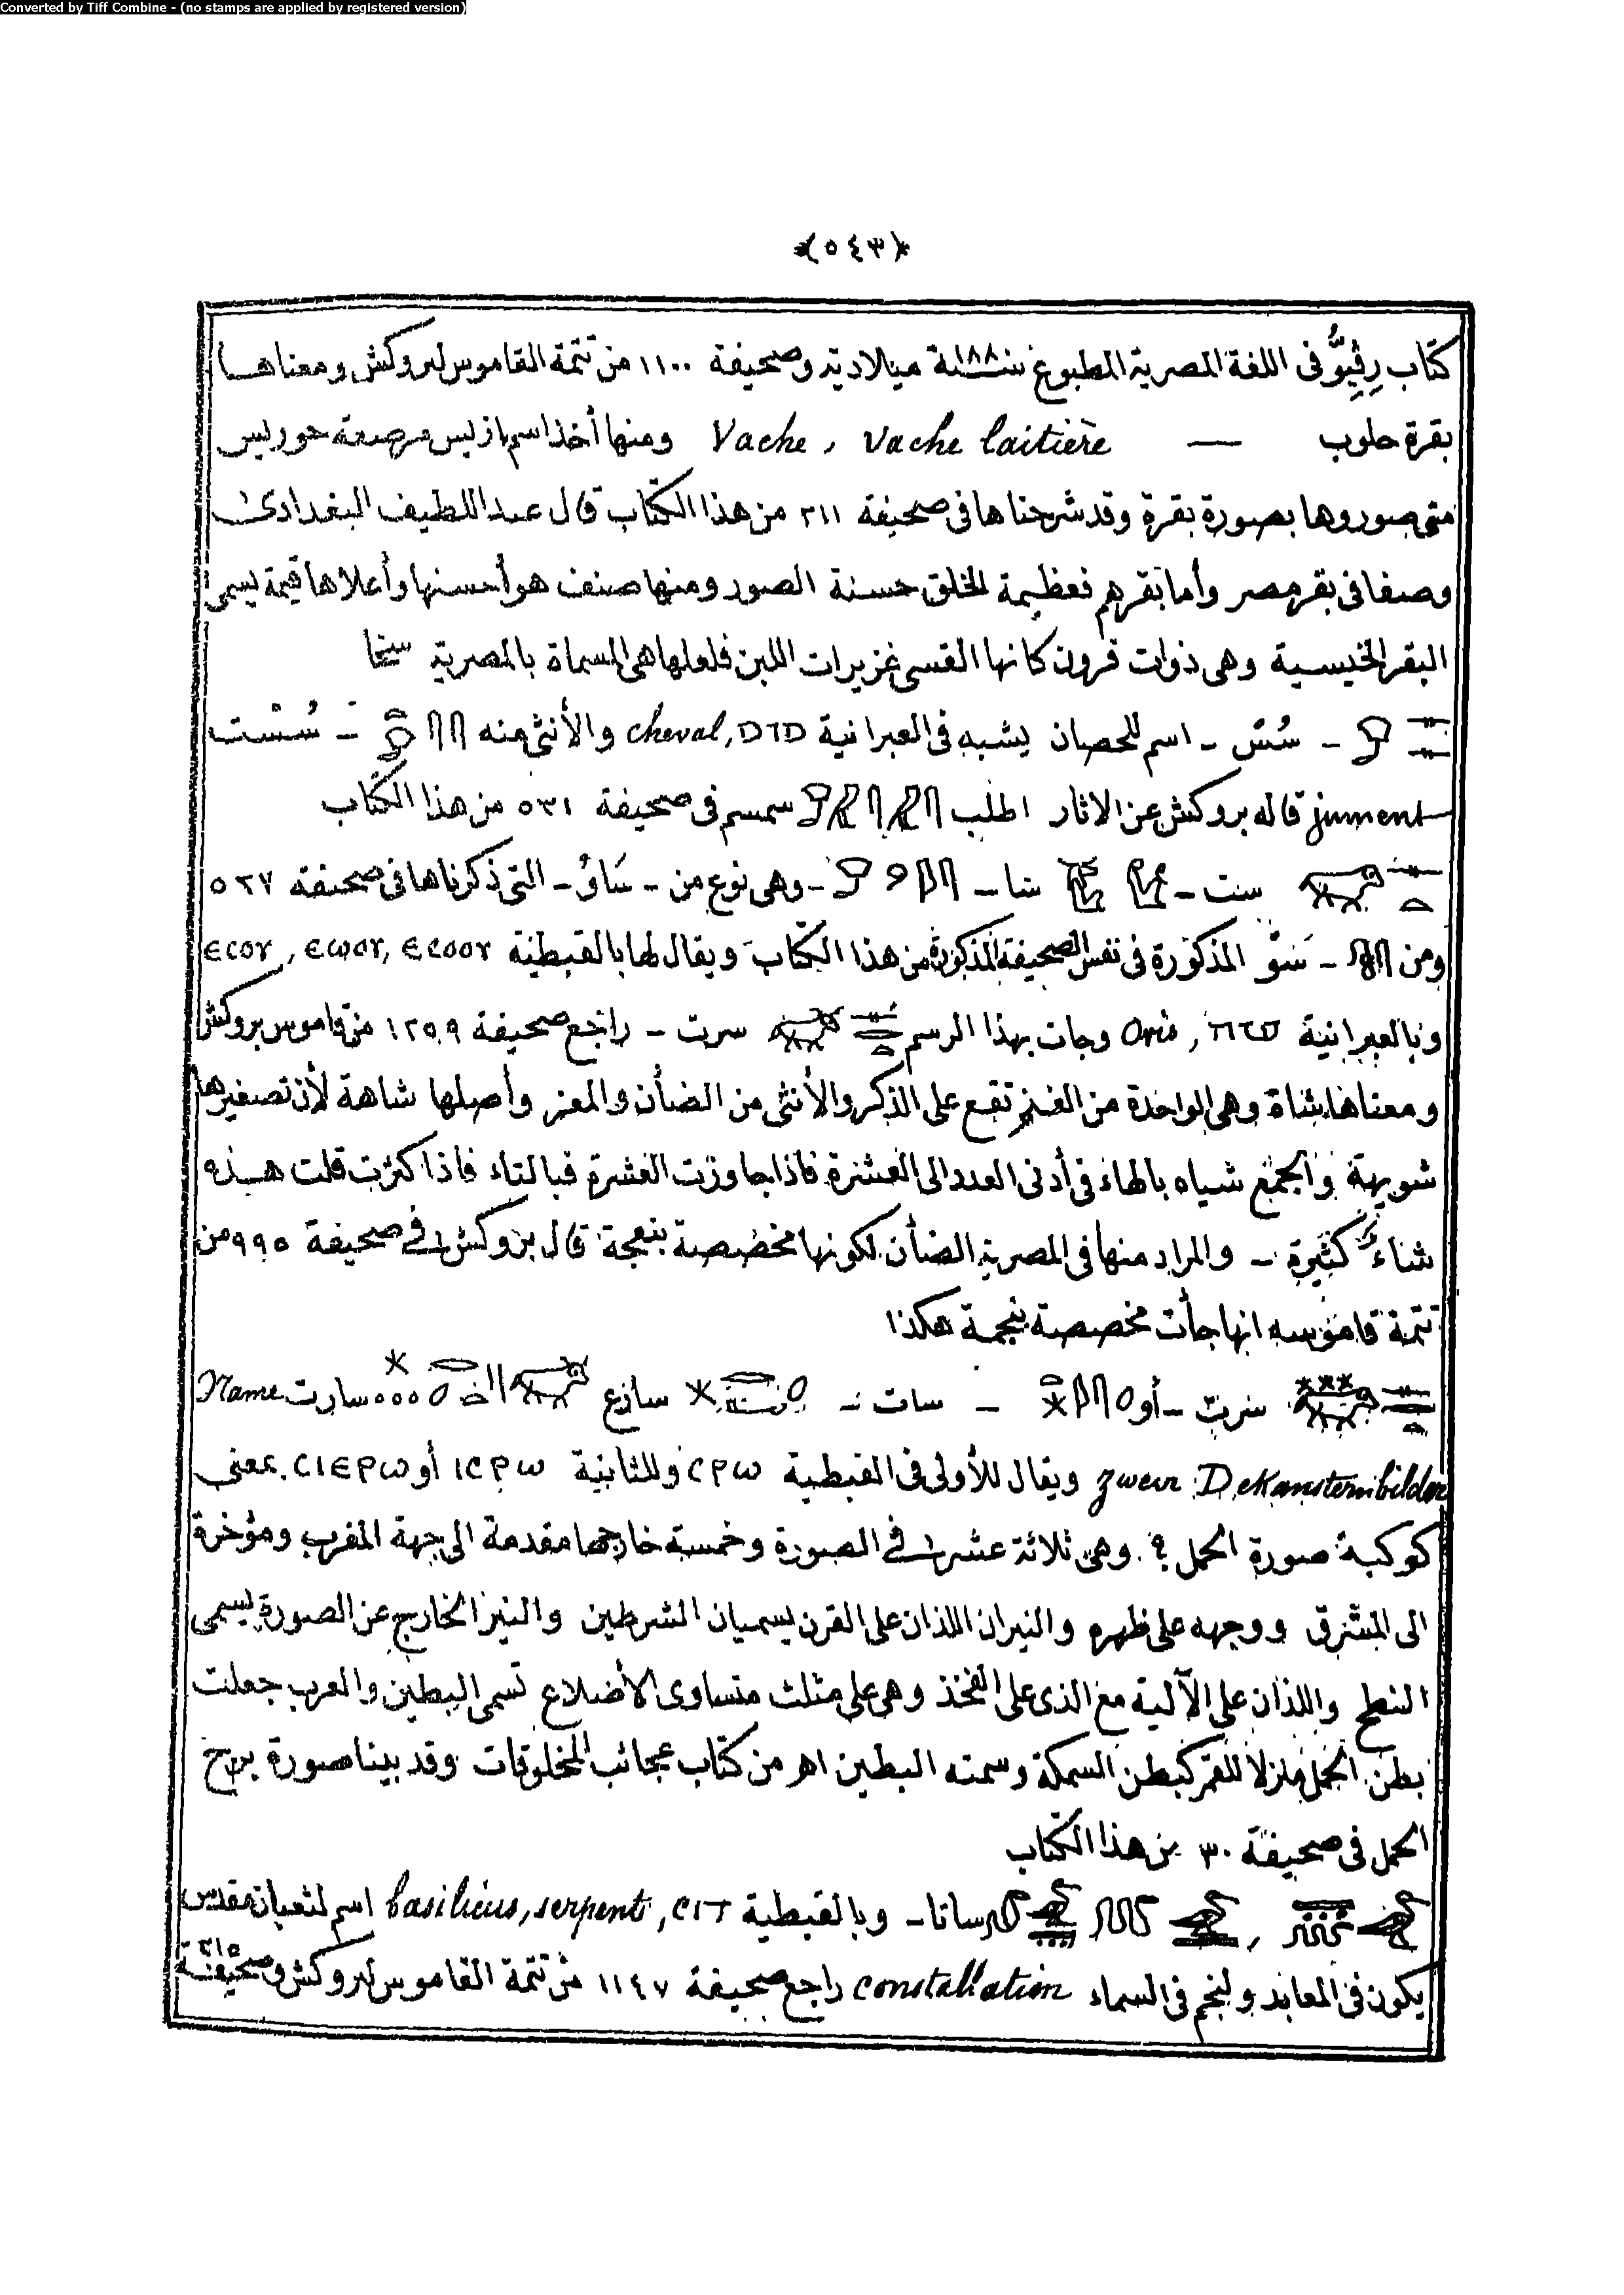 Converted by Tiff Combine - (no stamps are applied by registered version)
(٥٤٣)
كتاب رِفِيُّو فى اللغة المصرية المطبوع سنة ١٨٨ ميلادية وصحيفة ١١٠٠ من تتمة القاموس لبروكش ومعناها
بقرة حلوب — Vache, vache laitière ومنها أخذ اسم ازليس مرضعة حوريس
متى صوروها بصورة بقرة وقد شرحناها فى صحيفة ٣١١ من هذا الكتاب قال عبد اللطيف البغدادى
وصفا فى بقر مصر وأما بقرهم فعظيمة الخلق حسنة الصور ومنها صنف هو أحسنها وأعلاها قيمة يسمى
البقر الخيسية وهى ذوات قرون كانها القسى غزيرات اللبن فلعلها هى المسماة بالمصرية
– سُسْ – اسم للحصان يشبه فى العبرانية סוס ,cheval والأنثى منه – سُسْت
jument قاله بروكش عن الاثار اطلب سمسم فى صحيفة ٥٣١ من هذا الكتاب
ست – سا – وهى نوع من – سَاوُ – التى ذكرناها فى صحيفة ٥٢٧
ومن – سَوُّ المذكورة فى نفس الصحيفة المذكورة من هذا الكتاب ويقال لها بالقبطية ⲉⲥⲟⲩ , ⲉⲥⲱⲟⲩ, ⲉⲥⲟⲟⲩ
وبالعبرانية Ovis, وجات بهذا الرسم سرت – راجع صحيفة ١٢٥٩ من قاموس بروكش
ومعناها شاة وهى الواحدة من الغنم تقع على الذكر والأنثى من الضأن والمعز وأصلها شاهة لأن تصغيرها
شويهة والجمع شياه بالهاء فى أدنى العدد الى العشرة فاذا جاوزت العشرة فبالتاء فاذا كثرت قلت هذه
شاءٌ كثيرة – والمراد منها فى المصرية الضأن لكونها مخصصة بنعجة قال بروكش فى صحيفة ٩٩٥ من
تتمة قاموسه انها جأت مخصصة بنجمة هكذا
سرت – أو – سات – سارع سارت Name
zweir Dekansternbilder ويقال للأولى فى القبطية ⲥⲣⲱ وللثانية ⲓⲥⲣⲱ أو ⲥⲓⲉⲣⲱ بمعنى
كوكبة صورة الحمل ؟ وهى ثلاثة عشر فى الصورة وخمسة خارجها مقدمة الى جهة المغرب ومؤخرة
الى المشرق ووجهه على ظهره والنيران اللذان على القرن يسميان الشرطين والنير الخارج عن الصورة يسمى
النطح واللذان على الآلية مع الذى على الفخذ وهى على مثلث متساوى الأضلاع تسمى البطين والعرب جعلت
بطن الحمل منزلا للقمر كبطن السمكة وسمته البطين اهـ من كتاب عجائب المخلوقات وقد بينا صورة برج
الحمل فى صحيفة ٣٠ من هذا الكتاب
ساتا – وبالقبطية ⲥⲓⲧ ,basilicus, serpent اسم لثعبان مقدس
يكون فى المعابد ولنجم فى السماء constellation راجع صحيفة ١١٤٧ من تتمة القاموس لبروكش وصحيفة ٢١٥